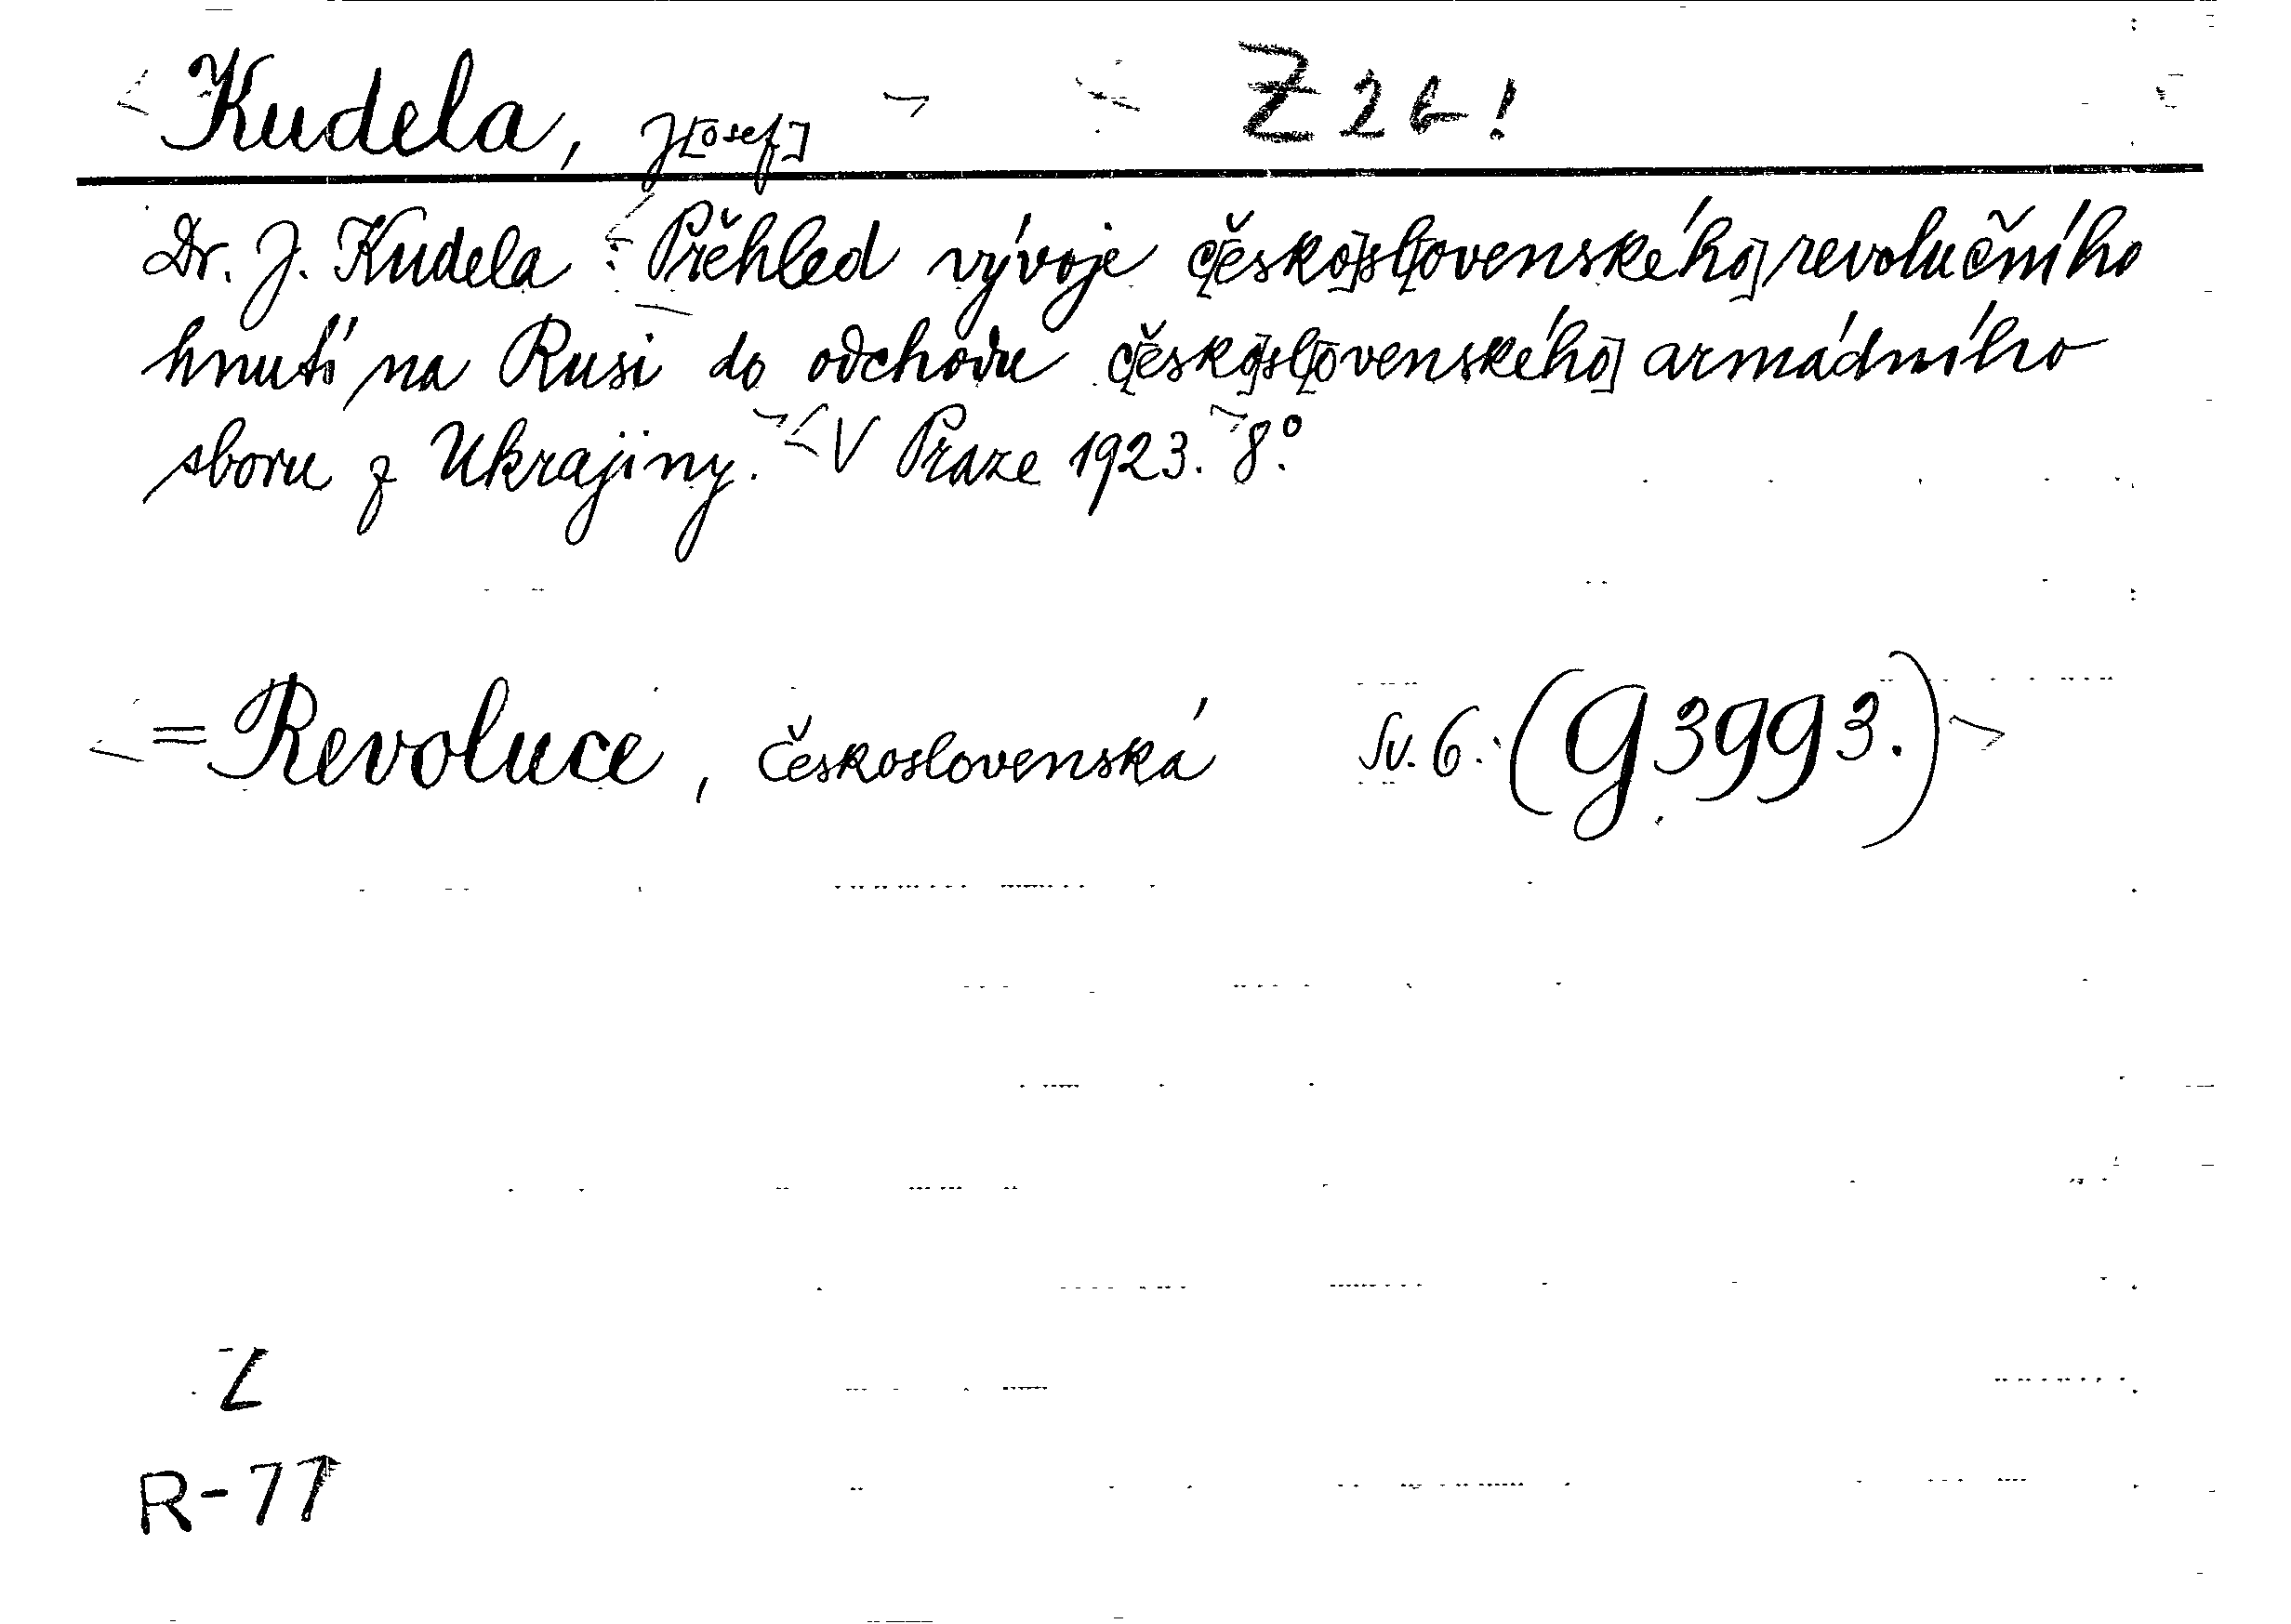 Kudela, J[osef] Z 26!
Dr. J. Kudela : Přěhled vývoje č[esko]sl[ovenského] revolučního
hnutí na Rusi do odchodu č[esko]sl[ovenského] armádního
sboru z Ukrajiny. V Praze 1923. 8°.
= Revoluce, Československá Sv. 6.: (G 3993.)
Z
R-77